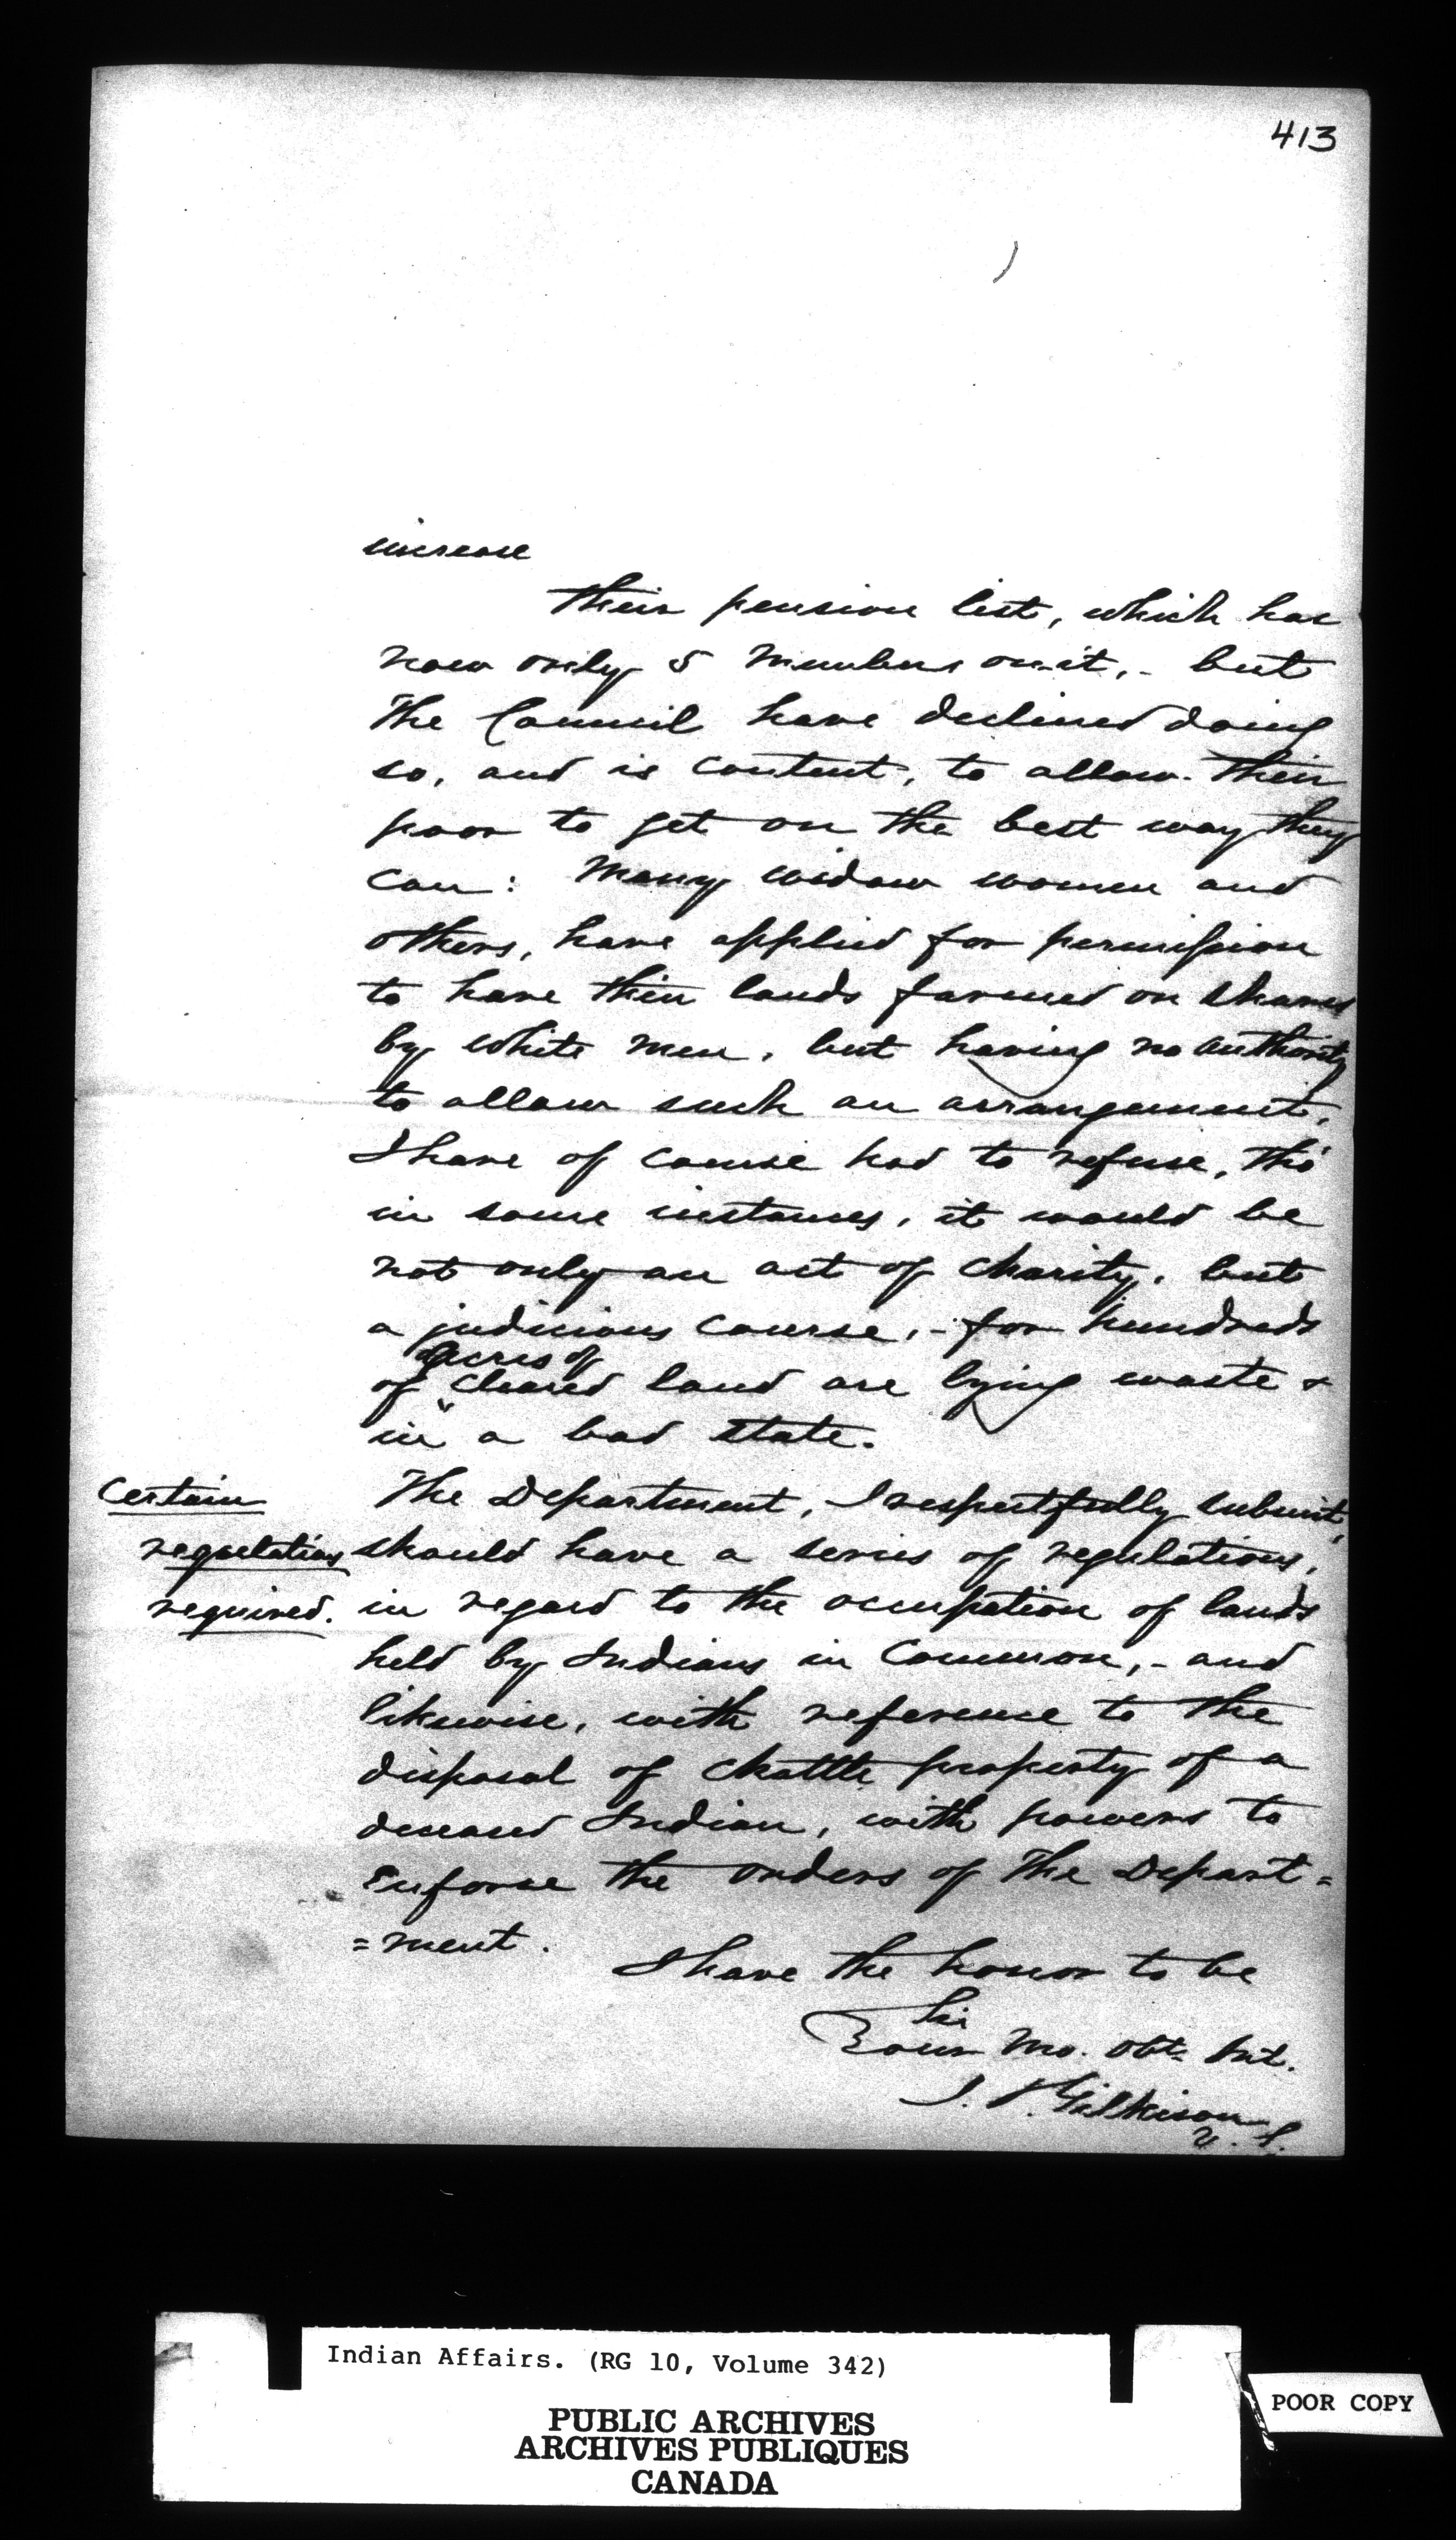 413
increase
their pension list, which has
now only 5 Members on it, - but
The Council have declined doing
so, and is content, to allow their
poor to get on the best way they
can: Many widow women and
others, have applied for permission
to have their lands farmed on shares
by White men, but having no authority
to allow such an arrangement,
I have of course had to refuse, tho'
in some instances, it would be
not only an act of charity, but
a judicious course, - for hundreds
acres of
of cleared land are lying waste &
in a bad state.
Certain
regulations
required.
The Department, I respectfully submit,
should have a series of regulations,
in regard to the occupation of lands
held by Indians in Common, - and
likewise, with reference to the
disposal of chattle property of a
deceased Indian, with powers to
Enforce the orders of The Depart=
=ment.
I have the honor to be
Sir
Your Mo. Obt. Svt.
J. T. Gilkison
V. S.
Indian Affairs. (RG 10, Volume 342)
PUBLIC ARCHIVES
ARCHIVES PUBLIQUES
CANADA
POOR COPY